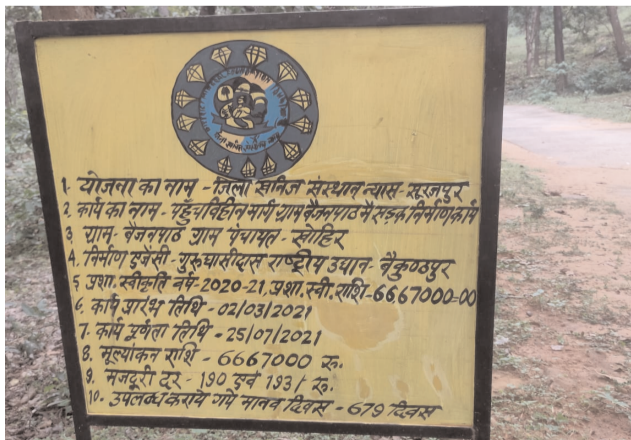 1. योजना का नाम - जिला खनिज संस्थान न्यास - सूरजपुर
2. कार्य का नाम - पहुँचविहीन मार्ग ग्राम बैजनपाठ मे सड़क निर्माण कार्य
3. ग्राम - बैजनपाठ ग्राम पंचायत - खोहिर
4. निर्माण एजेंसी - गुरूघासीदास राष्ट्रीय उद्यान - बैकुण्ठपुर
5. प्रशा. स्वीकृति वर्ष - 2020-21, प्रशा. स्वी. राशि - 6667000=00
6. कार्य प्रारंभ तिथि - 02/03/2021
7. कार्य पूर्णता तिथि - 25/07/2021
8. मूल्यांकन राशि - 6667000 रु.
9. मजदूरी दर - 190 एवं 193/ रु.
10. उपलब्ध कराये गये मानव दिवस - 679 दिवस